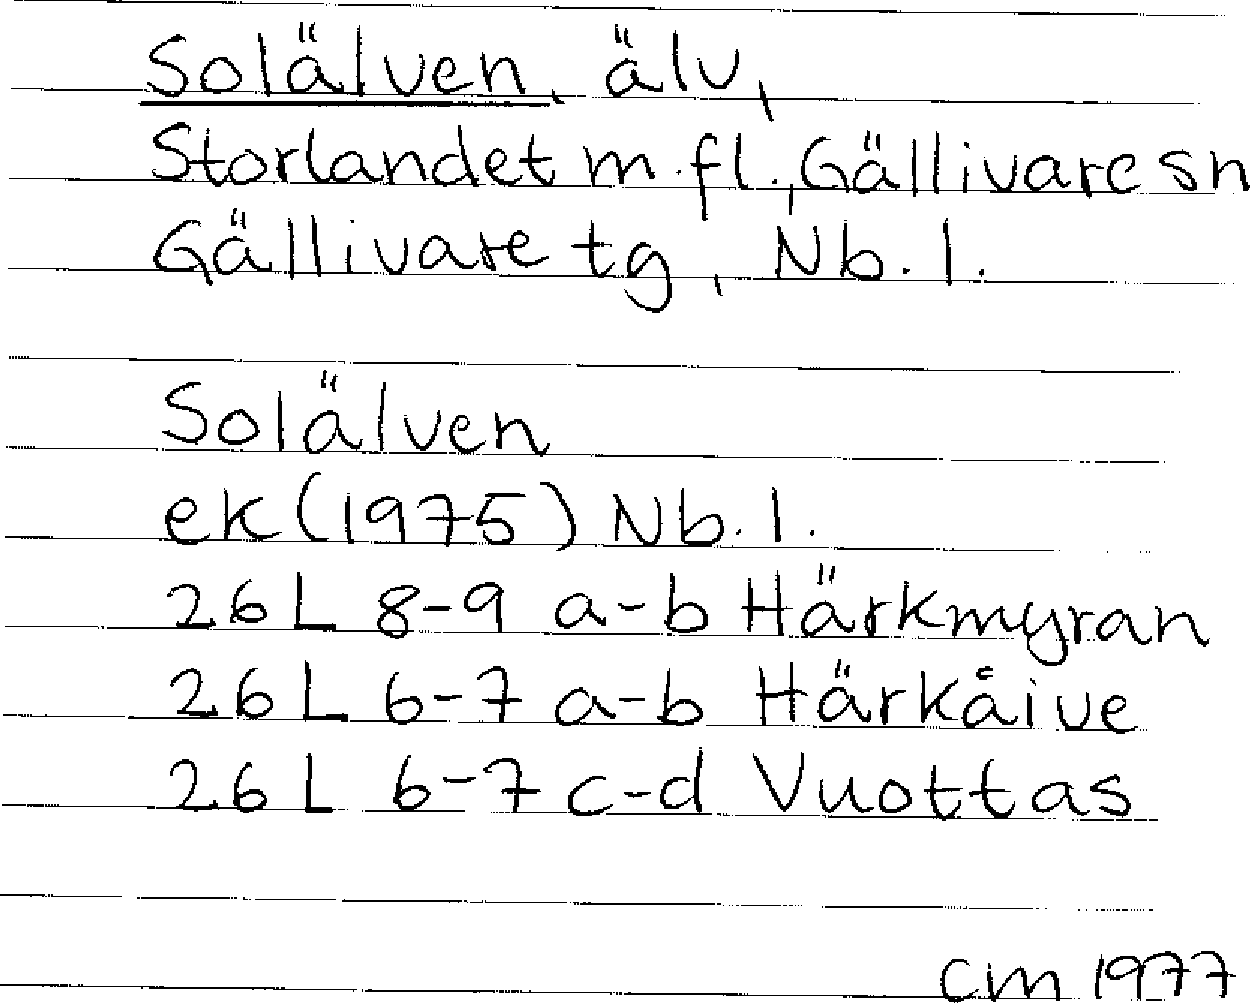 Solälven, älv,
Storlandet m.fl., Gällivare sn
Gällivare tg, Nb.l.
Solälven
ek (1975) Nb.l.
26 L 8-9 a-b Härkmyran
26 L 6-7 a-b Härkåive
26 L 6-7 c-d Vuottas
CM 1977